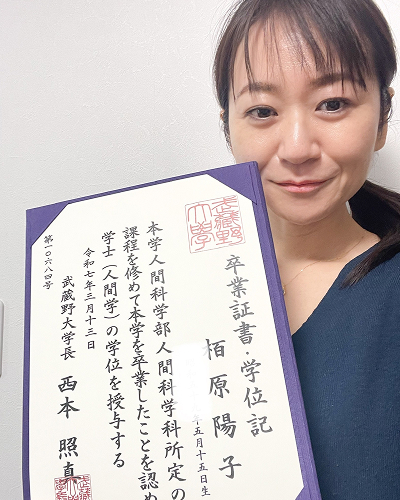 武蔵野大學
卒業証書・学位記
柏原陽子
年五月十五日生
本学人間科学部人間科学科所定の
課程を修めて本学を卒業したことを認め
学士（人間学）の学位を授与する
令和七年三月十三日
武蔵野大学長 西本照真
第一〇六八四号